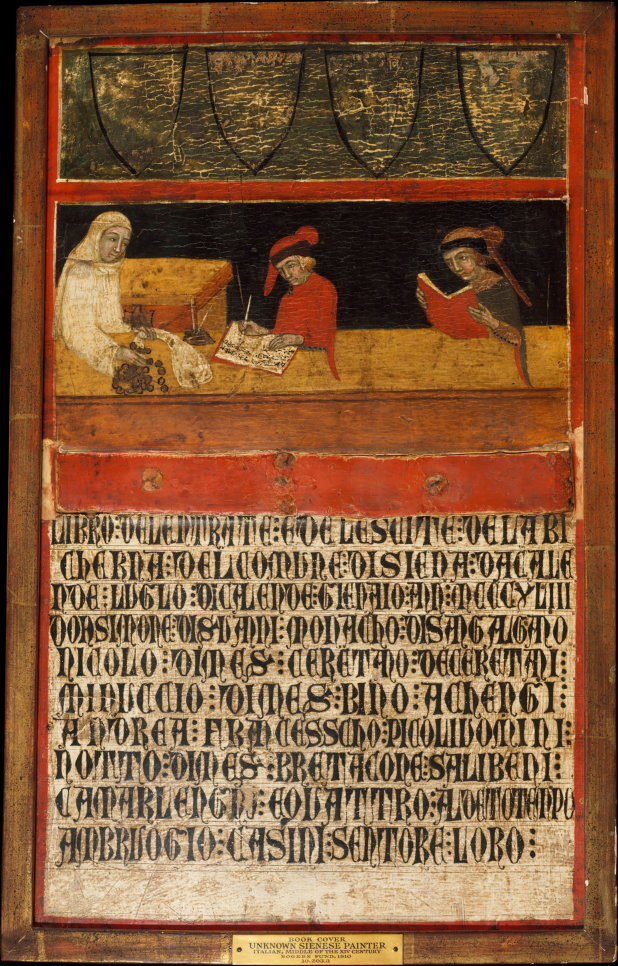 LIBRO:DELENTRATE:EDELESCITE:DELABI
CHERNA:DELCOMUNE:DISIENA:DACALE
NDE:LUGLO:DICALENDE:GIENAIO:
DONSIMONE: MONACHO:DISANGALGANO
NICOLO:DIMES:CERETANO:DECERETANI:
MINUCCIO:DIMES:BINO:ACHENGI:
ANDREA:FRANCESSCHO:PICOLUOMINI:
NOTTO:DIMES:BRETACONE:SALIBENI:
EQUATTRO:ALDETOTENPO
AMBRUOGIO:CASINI:SENTORE:LORO:
BOOK COVER
UNKNOWN SIENESE PAINTER
ITALIAN, MIDDLE OF THE XIV CENTURY
ROGERS FUND, 1910
10.203.3